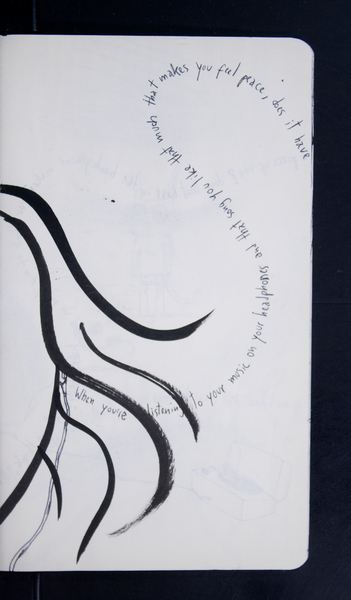 When you're listening to your music on your headphones and that song you like that much that makes you feel peace, does it have